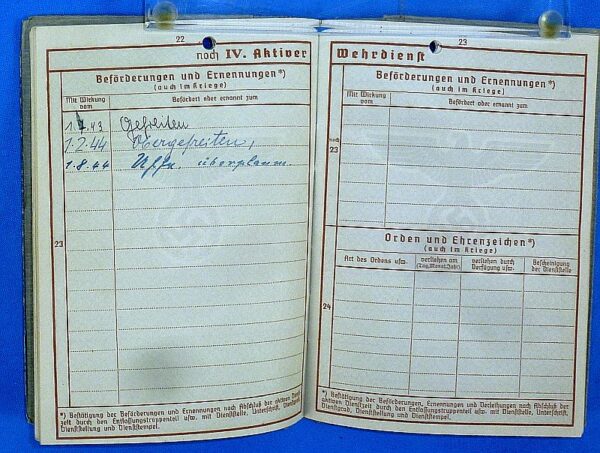 22
noch IV. Aktiver
Beförderungen und Ernennungen*)
(auch im Kriege)
Mit Wirkung vom
Befördert oder ernannt zum
43 Gefreiten
1.2.44 Obergefreiten,
1.8.44 Uffz. überplanm.
23
*) Bestätigung der Beförderungen und Ernennungen nach Abschluß der aktiven Dienst-
zeit durch den Entlassungstruppenteil usw. mit Dienststelle, Unterschrift, Dienstgrad,
Dienststellung und Dienststempel.
23
Wehrdienst
Beförderungen und Ernennungen*)
(auch im Kriege)
Mit Wirkung vom
Befördert oder ernannt zum
noch
23
Orden und Ehrenzeichen*)
(auch im Kriege)
Art des Ordens usw.
verliehen am (Tag, Monat, Jahr)
verliehen durch Verfügung usw.
Bescheinigung der Dienststelle
24
*) Bestätigung der Beförderungen, Ernennungen und Verleihungen nach Abschluß der
aktiven Dienstzeit durch den Entlassungstruppenteil usw. mit Dienststelle, Unterschrift,
Dienstgrad, Dienststellung und Dienststempel.